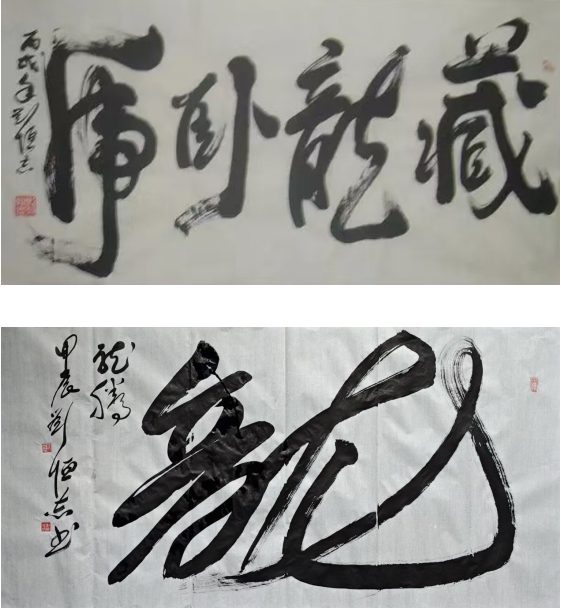 藏龍卧虎
丙戌年劉恒志
龍
龍騰
甲辰劉恒志书